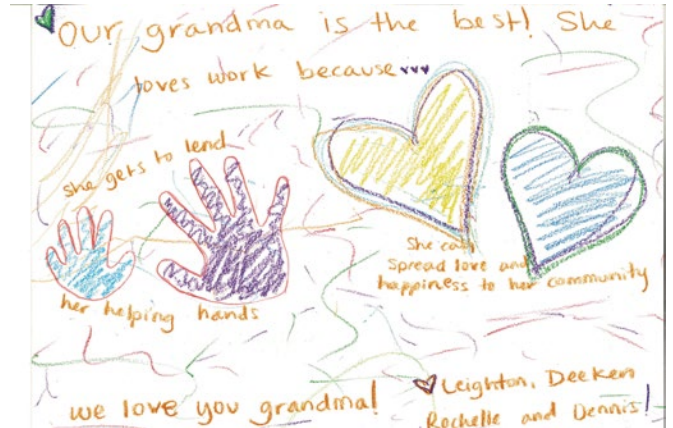 Our grandma is the best! She
loves work because
she gets to lend
her helping hands
She can
spread love and
happiness to her community
we love you grandma!
Leighton, Deeken
Rochelle and Dennis!